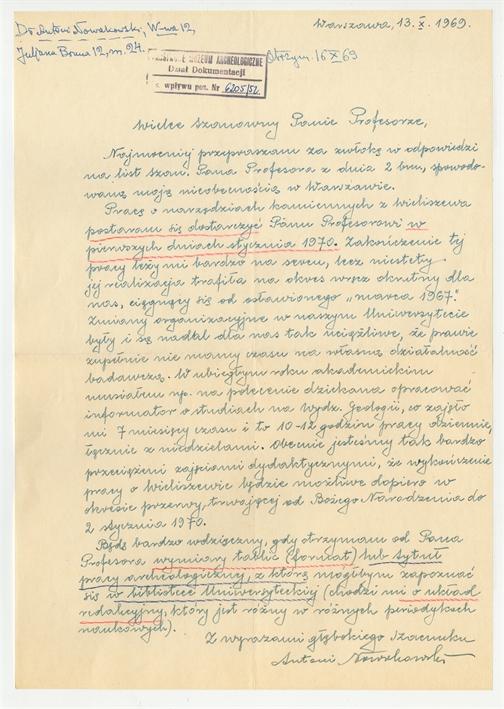 Dr Antoni Nowakowski, W-wa 12,
Juljana Bruna 12, m. 24.
Warszawa, 13.X.1969.
MUZEUM ARCHEOLOGICZNE
Dział Dokumentacji
wpływu poz. Nr 6205/52.
Otrzym. 16 X 69
Wielce Szanowny Panie Profesorze,
Najmocniej przepraszam za zwłokę w odpowiedzi
na list Szan. Pana Profesora z dnia 2 bm, spowodo-
waną moją nieobecnością w Warszawie.
Pracę o narzędziach kamiennych z Wieliszewa
postaram się dostarczyć Panu Profesorowi w
pierwszych dniach stycznia 1970. Zakończenie tej
pracy leży mi bardzo na sercu, lecz niestety
jej realizacja trafiła na okres wręcz okrutny dla
nas, ciągnący się od osławionego „marca 1967".
Zmiany organizacyjne w naszym Uniwersytecie
były i są nadal dla nas tak uciążliwe, że prawie
zupełnie nie mamy czasu na własną działalność
badawczą. W ubiegłym roku akademickim
musiałem np. na polecenie dziekana opracować
informator o studiach na Wydz. Geologii, co zajęło
mi 7 miesięcy czasu i to 10-12 godzin pracy dziennie,
łącznie z niedzielami. Obecnie jesteśmy tak bardzo
przeciążeni zajęciami dydaktycznymi, że wykończenie
pracy o Wieliszewie będzie możliwe dopiero w
okresie przerwy, trwającej od Bożego Narodzenia do
2 stycznia 1970.
Będę bardzo wdzięczny, gdy otrzymam od Pana
Profesora wymiary tablic (format) lub tytuł
pracy archeologicznej, z którą mógłbym zapoznać
się w bibliotece Uniwersyteckiej (chodzi mi o układ
redakcyjny, który jest różny w różnych periodykach
naukowych).
Z wyrazami głębokiego Szacunku
Antoni Nowakowski